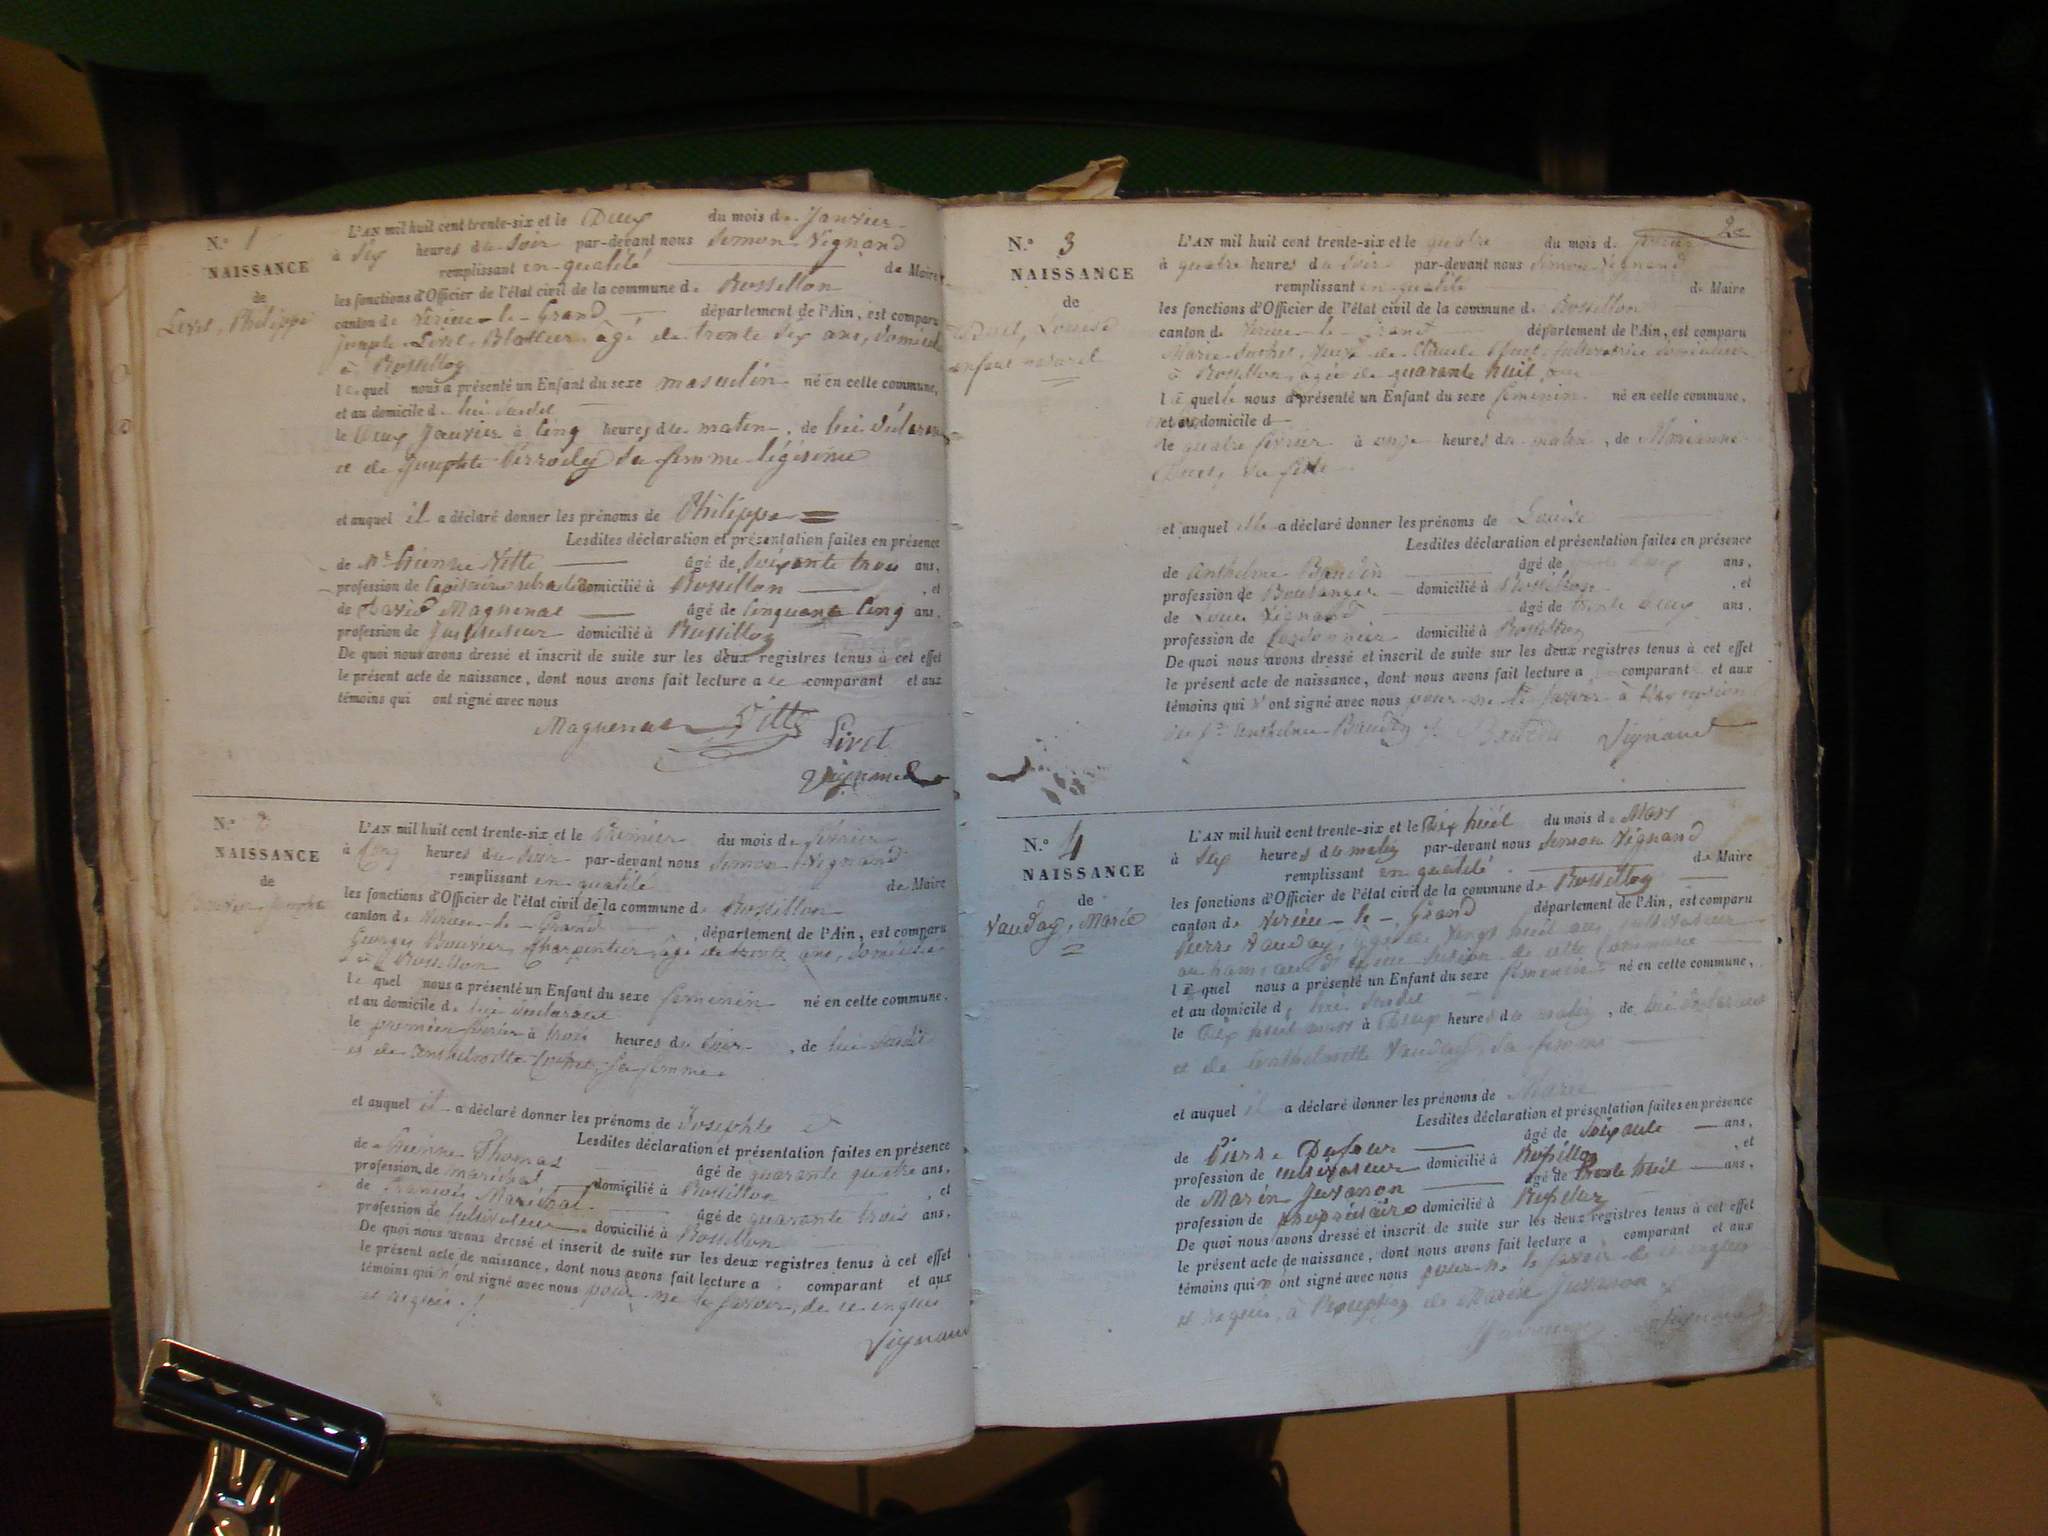 N.º 1
NAISSANCE
de
Livet, Philippe
L'AN mil huit cent trente-six et le Deux du mois de Janvier
à Six heures du Soir par-devant nous Simon Vignand
remplissant en qualité de Maire
les fonctions d'Officier de l'état civil de la commune de Rossillon
canton de Virieu-le-Grand département de l'Ain, est comparu
Livet, âgé de trente six ans, domicilié
à Rossillon
lequel nous a présenté un Enfant du sexe masculin né en cette commune,
et au domicile de lui susdit
le Deux Janvier à cinq heures du matin, de lui déclarant
et de Josephte sa femme légitime
et auquel il a déclaré donner les prénoms de Philippe
Lesdites déclaration et présentation faites en présence
de Mr. Etienne Vitte âgé de soixante trois ans,
profession de Capitaine retraité domicilié à Rossillon, et
de David Maguenat âgé de cinquante cinq ans,
profession de Instituteur domicilié à Rossillon
De quoi nous avons dressé et inscrit de suite sur les deux registres tenus à cet effet
le présent acte de naissance, dont nous avons fait lecture au comparant et aux
témoins qui ont signé avec nous
Maguenat Vitte
Livet
Vignand
N.º 2
NAISSANCE
de
Bouvier, Josephte
L'AN mil huit cent trente-six et le Premier du mois de février
à Cinq heures du Soir par-devant nous Simon Vignand
remplissant en qualité de Maire
les fonctions d'Officier de l'état civil de la commune de Rossillon
canton de Virieu-le-Grand département de l'Ain, est comparu
Georges Bouvier, Charpentier, âgé de trente ans, domicilié
à Rossillon
lequel nous a présenté un Enfant du sexe feminin né en cette commune,
et au domicile de lui déclarant
le premier février à trois heures du Soir, de lui susdit
et de Anthelmette sa femme
et auquel il a déclaré donner les prénoms de Josephte
Lesdites déclaration et présentation faites en présence
de Etienne Thomas âgé de quarante quatre ans,
profession de maréchal domicilié à Rossillon, et
de François Maréchal âgé de quarante trois ans,
profession de cultivateur domicilié à Rossillon
De quoi nous avons dressé et inscrit de suite sur les deux registres tenus à cet effet
le présent acte de naissance, dont nous avons fait lecture a comparant et aux
témoins qui n'ont signé avec nous pour ne le savoir, de ce enquis
et requis
Vignand
2e
N.º 3
NAISSANCE
de
Louise
enfant naturel
L'AN mil huit cent trente-six et le quatre du mois de février
à quatre heures du soir par-devant nous Simon Vignand
remplissant en qualité de Maire
les fonctions d'Officier de l'état civil de la commune de Rossillon
canton de Virieu-le-Grand département de l'Ain, est comparu
Marie veuve de Claude cultivatrice domiciliée
à Rossillon, âgée de quarante huit ans
laquelle nous a présenté un Enfant du sexe feminin né en cette commune,
et au domicile d
le quatre février à onze heures du matin, de Marianne
sa fille
et auquel elle a déclaré donner les prénoms de Louise
Lesdites déclaration et présentation faites en présence
de Anthelme Baudin âgé de ans,
profession de Boulanger domicilié à Rossillon, et
de Louis Vignand âgé de trente deux ans,
profession de Cordonnier domicilié à Rossillon
De quoi nous avons dressé et inscrit de suite sur les deux registres tenus à cet effet
le présent acte de naissance, dont nous avons fait lecture a comparant et aux
témoins qui n'ont signé avec nous pour ne le savoir à l'exception
du Sr. Anthelme Baudin Baudin Vignand
N.º 4
NAISSANCE
de
Vauday, Marie
L'AN mil huit cent trente-six et le Dix huit du mois de Mars
à Six heures du matin par-devant nous Simon Vignand
remplissant en qualité de Maire
les fonctions d'Officier de l'état civil de la commune de Rossillon
canton de Virieu-le-Grand département de l'Ain, est comparu
Pierre Vauday, âgé de vingt huit ans, cultivateur
au hameau de cette Commune
lequel nous a présenté un Enfant du sexe femenin né en cette commune,
et au domicile de lui susdit
le Dix huit mars à Deux heures du matin, de lui déclarant
et de Anthelmette Vauday, sa femme
et auquel il a déclaré donner les prénoms de Marie
Lesdites déclaration et présentation faites en présence
de Pierre Dufour âgé de soixante ans,
profession de cultivateur domicilié à Rossillon, et
de Marin Juvanon âgé de trente huit ans,
profession de propriétaire domicilié à Rossillon
De quoi nous avons dressé et inscrit de suite sur les deux registres tenus à cet effet
le présent acte de naissance, dont nous avons fait lecture a comparant et aux
témoins qui n'ont signé avec nous pour ne le savoir de ce enquis
et requis, à l'exception de Marin Juvanon
Juvanon Vignand